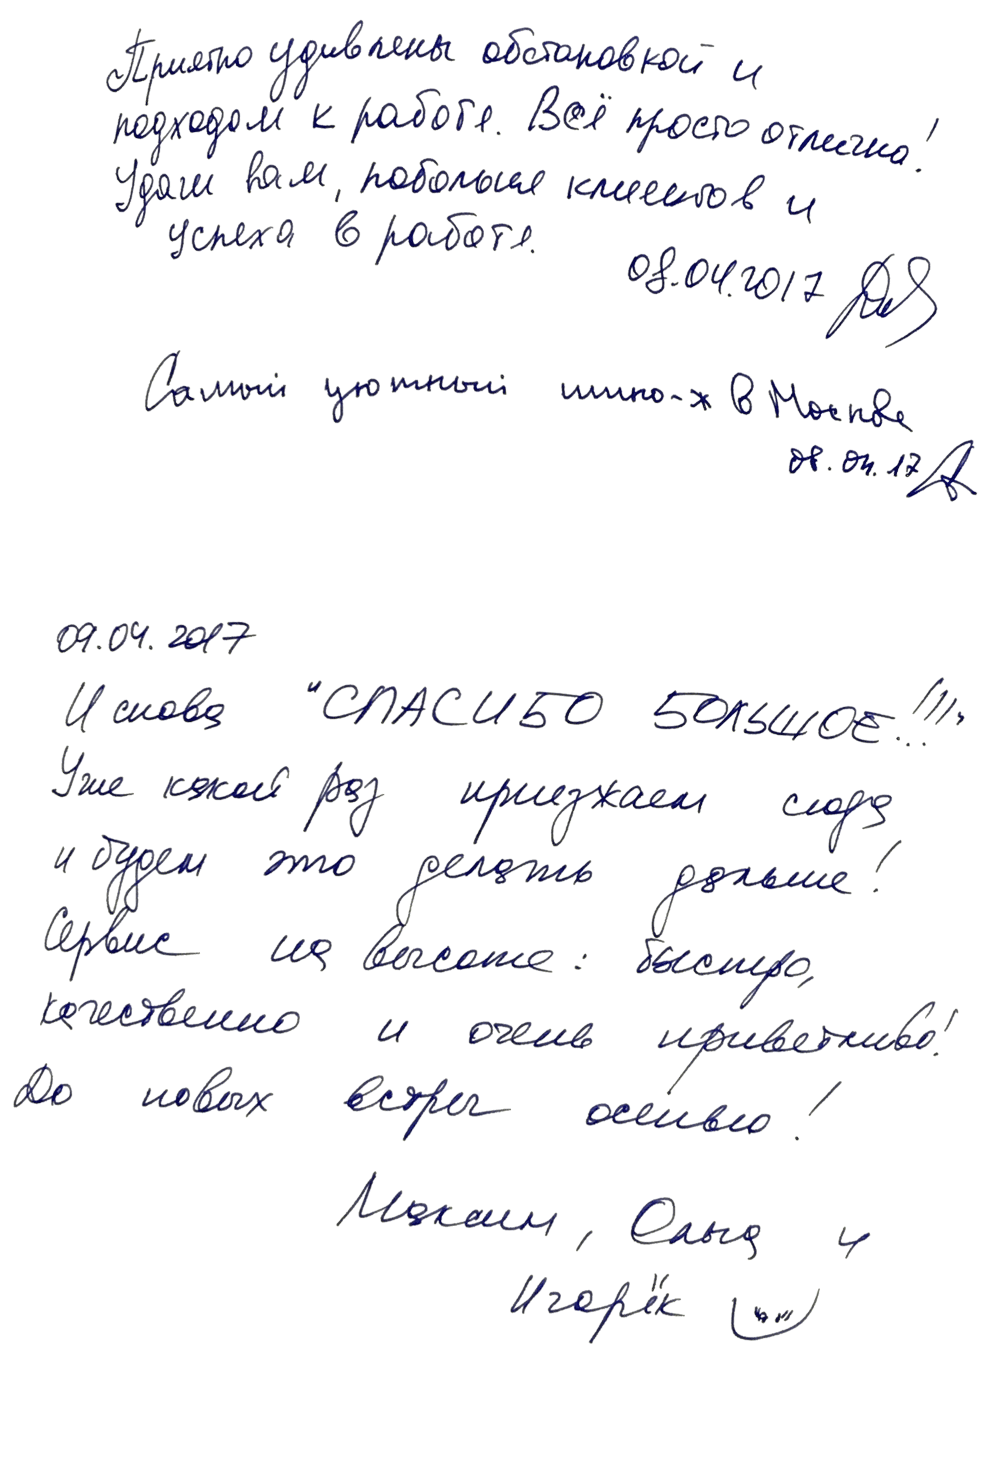 Приятно удивлены обстановкой и
подходом к работе. Всё просто отлично!
Удачи вам, побольше клиентов и
успеха в работе.
08.04.2017
Самый уютный шино-ж в Москве
08.04.17
09.04.2017
И снова "СПАСИБО БОЛЬШОЕ!!!"
Уже какой раз приезжаем сюда
и будем это делать дальше!
Сервис на высоте: быстро,
качественно и очень приветливо!
До новых встреч осенью!
Максим, Ольга и
Игорёк